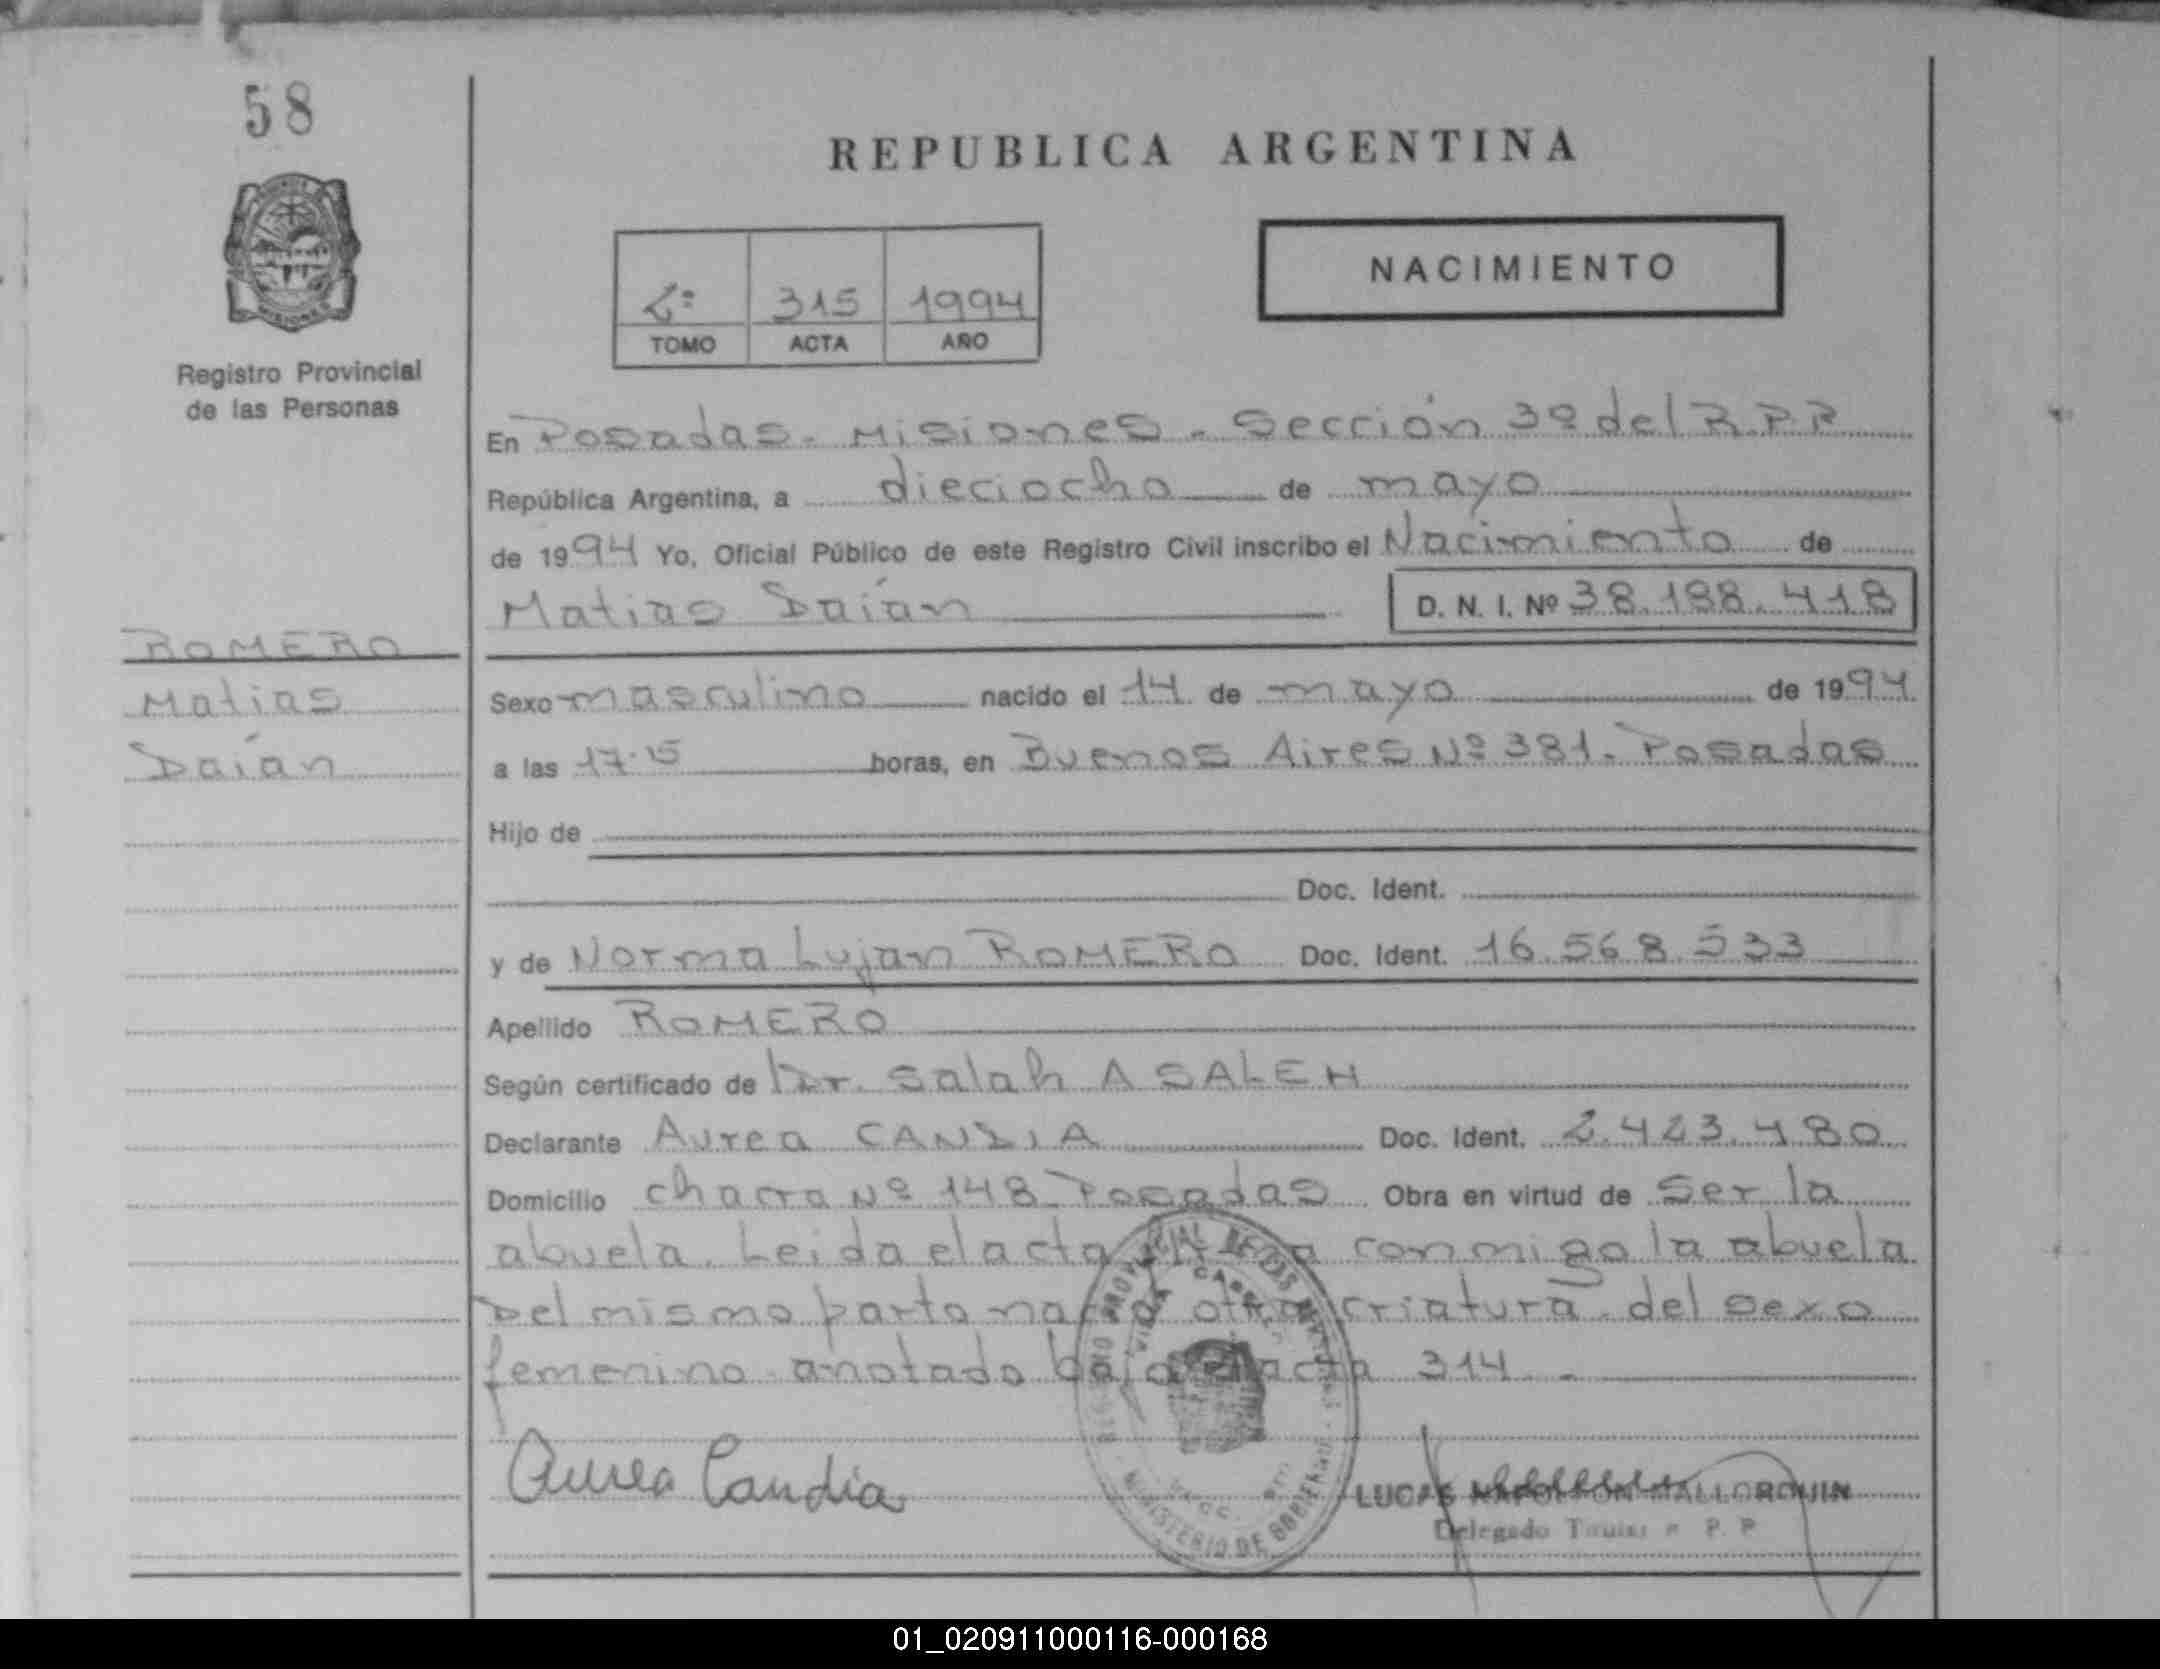 58
REPUBLICA ARGENTINA
NACIMIENTO
2º 315 1994
TOMO ACTA AÑO
MISIONES
Registro Provincial
de las Personas
En Posadas - Misiones - Sección 3º del R.P.P
República Argentina, a dieciocho de mayo
de 1994 Yo, Oficial Público de este Registro Civil inscribo el Nacimiento de
Matias Daían D. N. I. Nº 38.188.418
ROMERO
Matias
Daían
Sexo masculino nacido el 14 de mayo de 1994
a las 17.15 horas, en Buenos Aires Nº 381 - Posadas
Hijo de
Doc. Ident.
y de Norma Lujan ROMERO Doc. Ident. 16.568.533
Apellido ROMERO
Según certificado de Dr. Salah A SALEH
Declarante Aurea CANDIA Doc. Ident. 2.423.480
Domicilio chacra Nº 148 Posadas Obra en virtud de ser la
abuela. Leida el acta conmigo la abuela
Del mismo parto nació otra criatura del sexo
femenino anotado bajo el acta 314.-
Aurea Candia
LUCAS NAPOLEON MALLORQUIN
Delegado Titular R. P. P.
MINISTERIO DE GOBIERNO
01_020911000116-000168